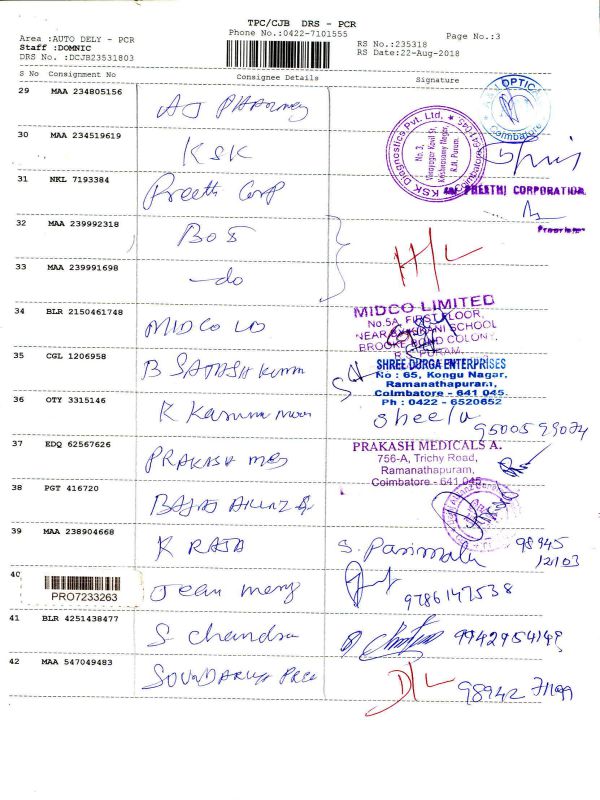 TPC/CJB DRS - PCR
Phone No.:0422-7101555
Page No.:3
Area :AUTO DELY - PCR
Staff :DOMNIC
DRS No. :DCJB23531803
RS No.:235318
RS Date:22-Aug-2018
S No Consignment No Consignee Details Signature
29 MAA 234805156 AJ
OPTICA
Coimbatore
30 MAA 234519619 KSK
KSK Diagnostics Pvt. Ltd.
No.3,
Vinayagar Kovil St,
Krishnasamy Nagar,
R.N. Puram.
Coimbatore - 641 045.
31 NKL 7193384 Preeth Corp
PREETHI CORPORATION
Proprietor
32 MAA 239992318
H/L
33 MAA 239991698 -do
34 BLR 2150461748 MIDCO LD
MIDCO LIMITED
No.5A, FIRST FLOOR,
NEAR SCHOOL
BROOKE BOND COLONY,
PURAM.
35 CGL 1206958 B SATASH Kumar
SHREE DURGA ENTERPRISES
No : 65, Kongu Nagar,
Ramanathapuram,
Coimbatore - 641 045.
Ph : 0422 - 6520652
36 OTY 3315146 R
Sheela
9500599074
37 EDQ 62567626 PRAKASH MES
PRAKASH MEDICALS A.
756-A, Trichy Road,
Ramanathapuram,
Coimbatore - 641 045.
38 PGT 416720 BAJAJ
39 MAA 238904668 K RAJA S. Parimala 98945
12103
40 PRO7233263 Jean 9786147538
41 BLR 4251438477 S Chandra 9942954149
42 MAA 547049483 D/L 98942 71199